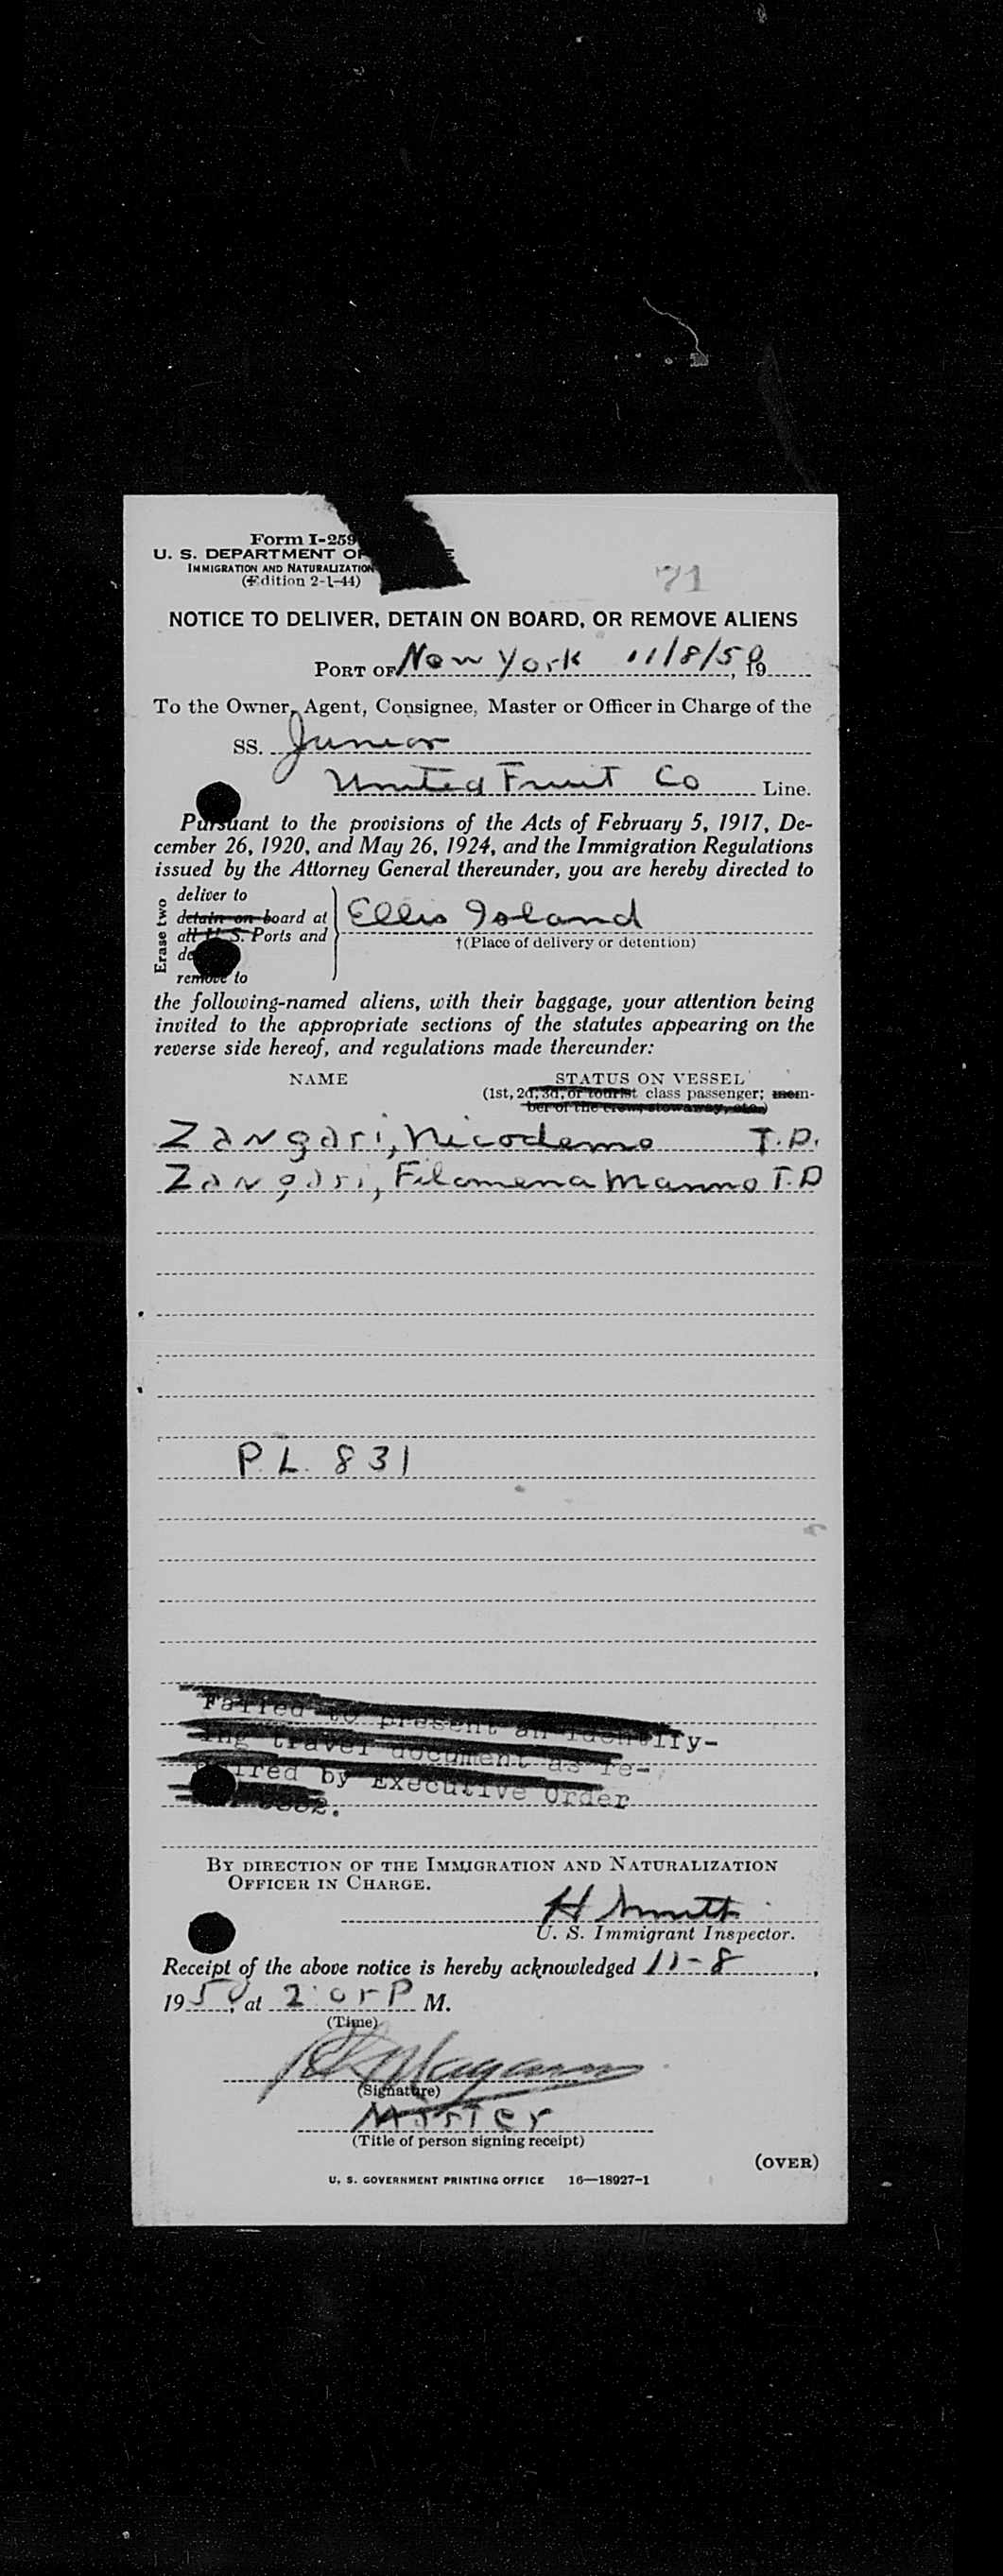 Form I-259
U. S. DEPARTMENT OF
IMMIGRATION AND NATURALIZATION
(Edition 2-1-44)
71
NOTICE TO DELIVER, DETAIN ON BOARD, OR REMOVE ALIENS
PORT OF New York 11/8/50, 19
To the Owner, Agent, Consignee, Master or Officer in Charge of the
SS. Junior
United Fruit Co Line.
Pursuant to the provisions of the Acts of February 5, 1917, De-
cember 26, 1920, and May 26, 1924, and the Immigration Regulations
issued by the Attorney General thereunder, you are hereby directed to
Erase two
deliver to
detain on board at
all U. S. Ports and
remove to
Ellis Island
†(Place of delivery or detention)
the following-named aliens, with their baggage, your attention being
invited to the appropriate sections of the statutes appearing on the
reverse side hereof, and regulations made thereunder:
NAME STATUS ON VESSEL
(1st, 2d, 3d, or tourist class passenger; mem-
ber of the crew, stowaway, etc.)
Zangari, Nicodemo T.D.
Zangari, Filomena Manno T.D
P.L. 831
Failed to present an identify-
ing travel document as re-
quired by Executive Order
BY DIRECTION OF THE IMMIGRATION AND NATURALIZATION
OFFICER IN CHARGE.
H Smith
U. S. Immigrant Inspector.
Receipt of the above notice is hereby acknowledged 11-8,
1950, at P M.
(Time)
(Signature)
(Title of person signing receipt)
(OVER)
U. S. GOVERNMENT PRINTING OFFICE 16—18927-1